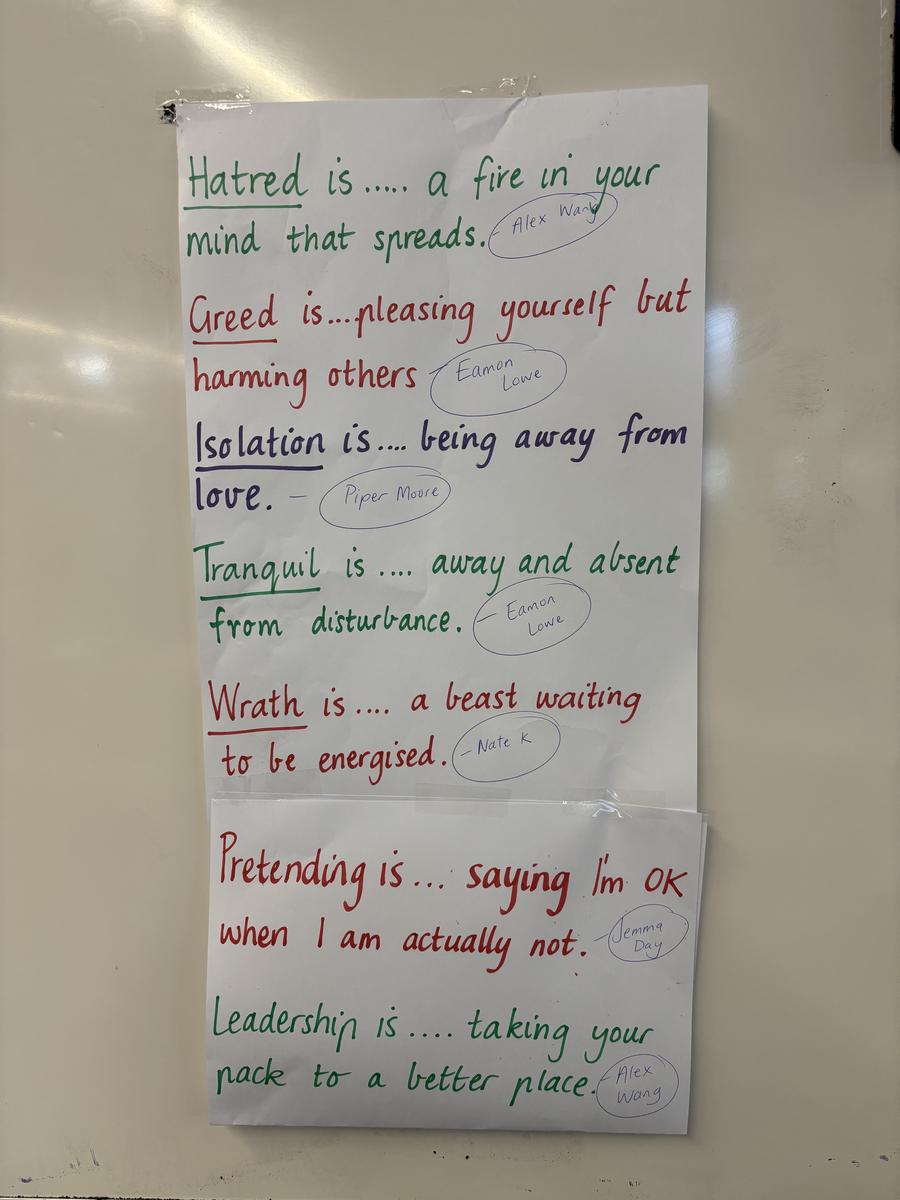 Hatred is..... a fire in your
mind that spreads. - Alex Wang
Greed is...pleasing yourself but
harming others - Eamon
Lowe
Isolation is.... being away from
love. - Piper Moore
Tranquil is .... away and absent
from disturbance. - Eamon
Lowe
Wrath is .... a beast waiting
to be energised. - Nate K
Pretending is... saying I'm OK
when I am actually not. - Jemma
Day
Leadership is.... taking your
pack to a better place. - Alex
Wang